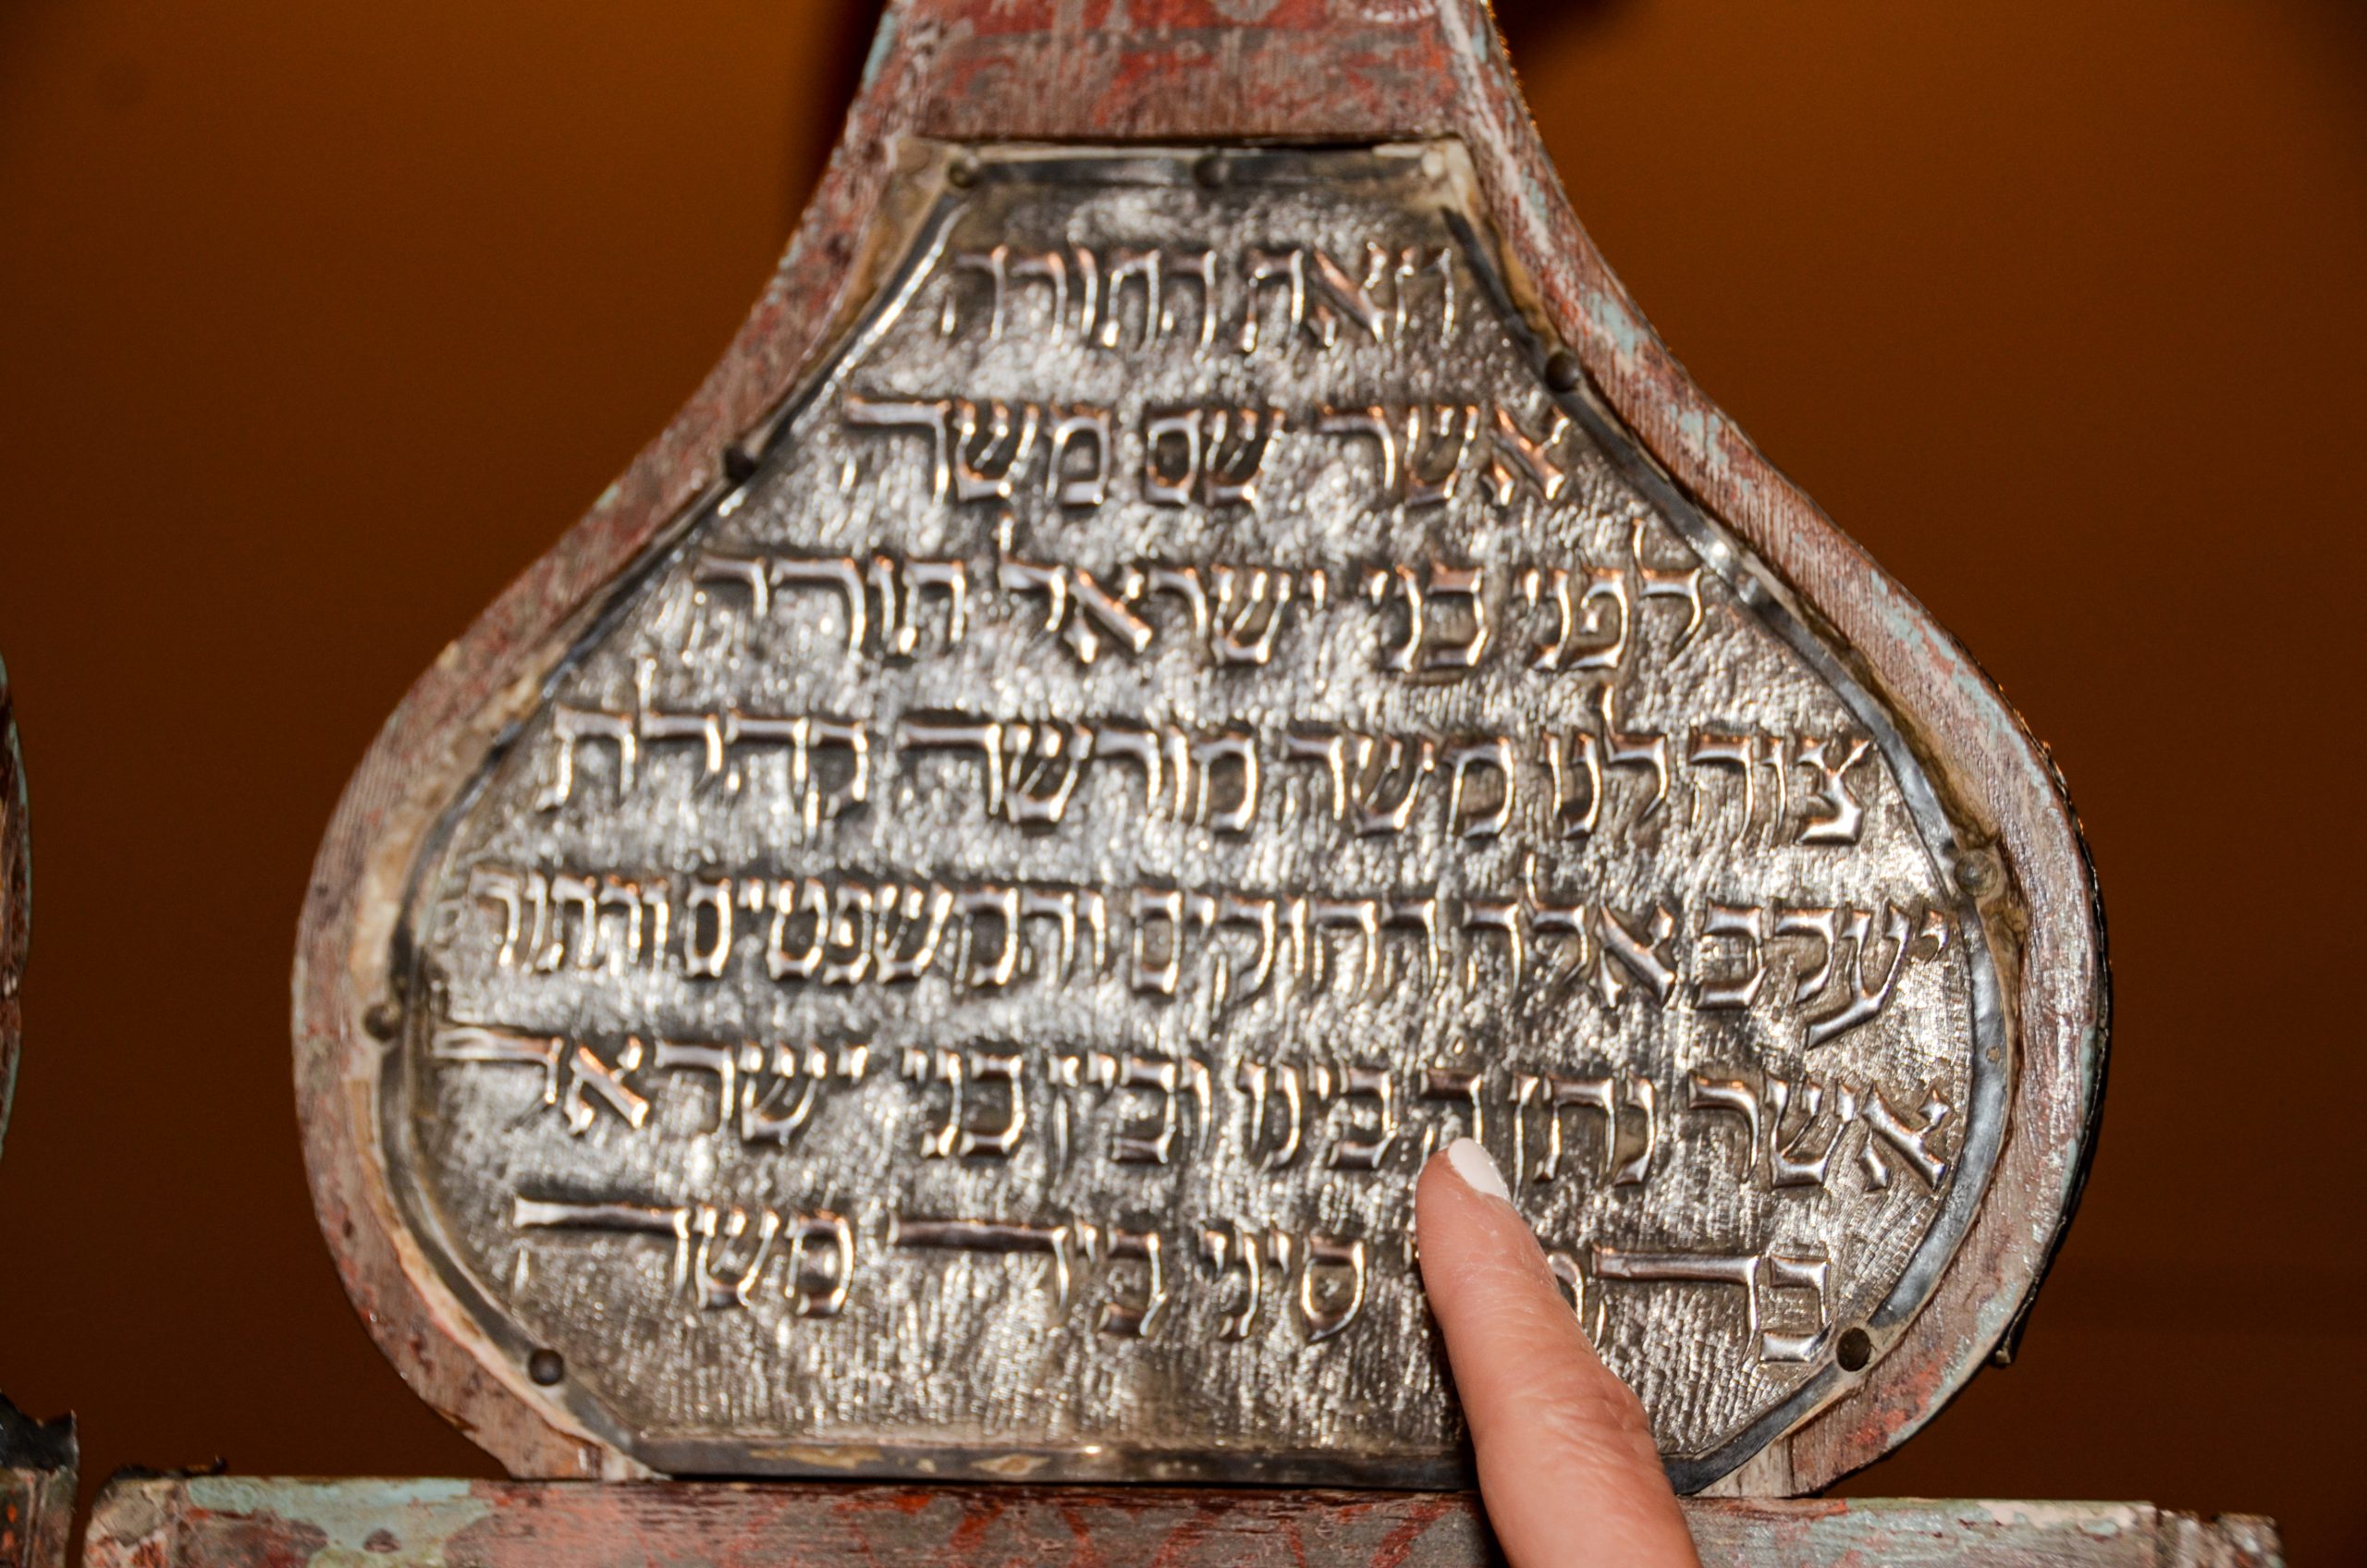 וזאת התורה
אשר שם משה
לפני בני ישראל תורה
צוה לנו משה מורשה קהלת
יעקב אלה החוקים והמשפטים והתור
אשר נתן ה בינו ובין בני ישראל
סיני ביד משה